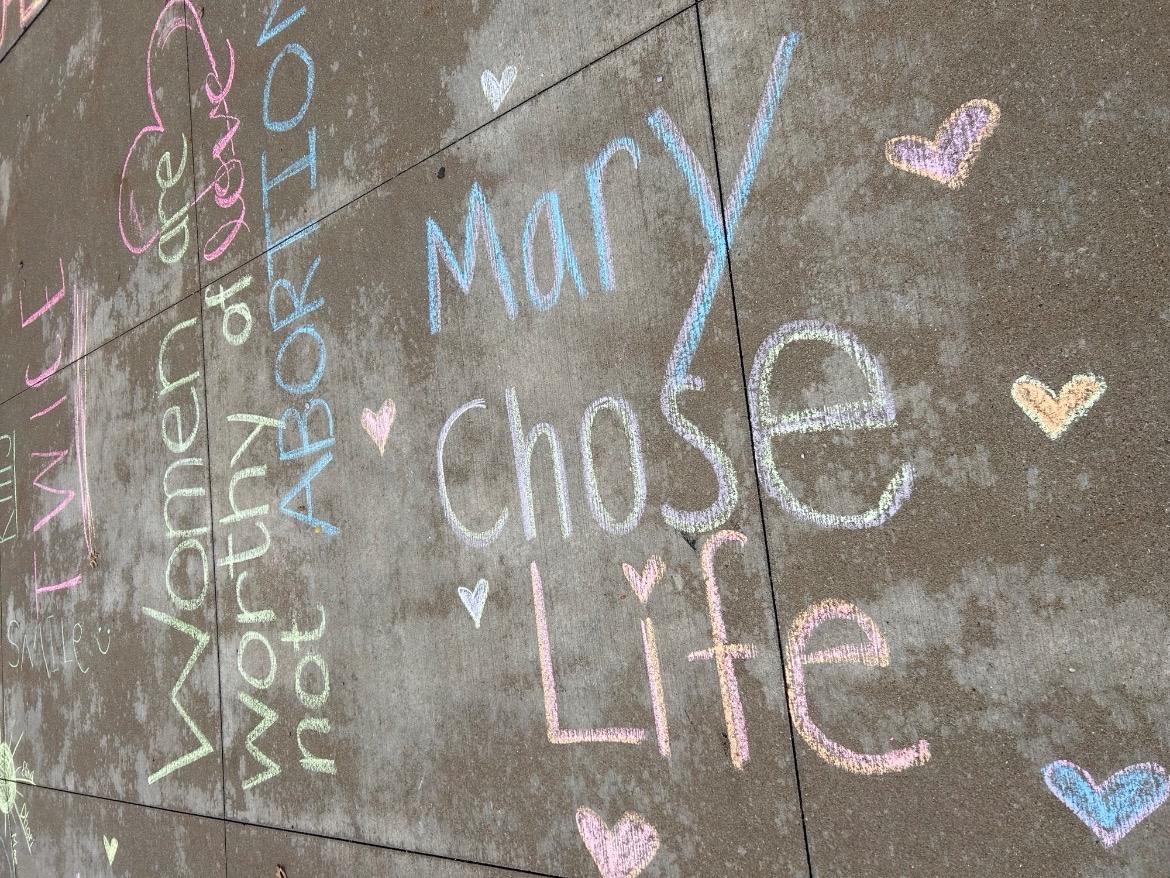 Mary
Chose
Life
Women are
worthy of Love
not ABORTION
TWICE
SMILE